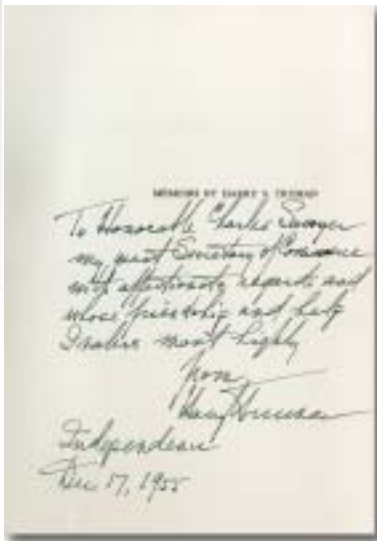 MEMOIRS BY HARRY S. TRUMAN
To Honorable Charles Sawyer
my great Secretary of Commerce
with affectionate regards and
whose friendship and help
I value most highly
from
Harry Truman
Independence
Dec 17, 1955